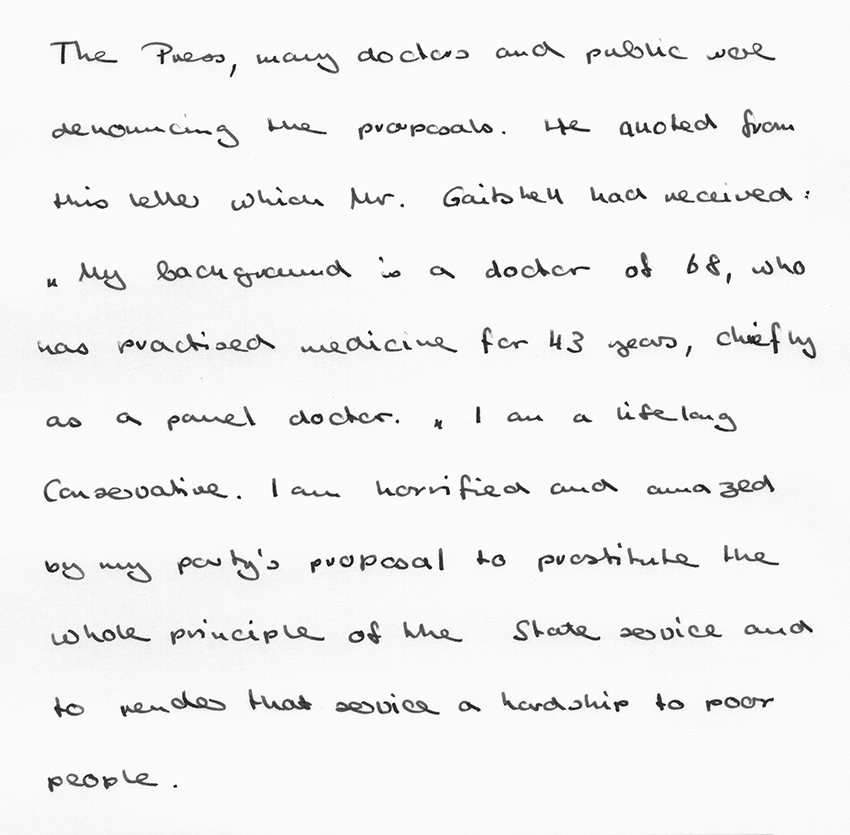 The Press, many doctors and public were
denouncing the proposals. He quoted from
this letter which Mr. Gaitskell had received:
„ My background is a doctor of 68, who
has practised medicine for 43 years, chiefly
as a panel doctor. „ I am a lifelong
Conservative. I am horrified and amazed
by my party's proposal to prostitute the
whole principle of the State service and
to render that service a hardship to poor
people.